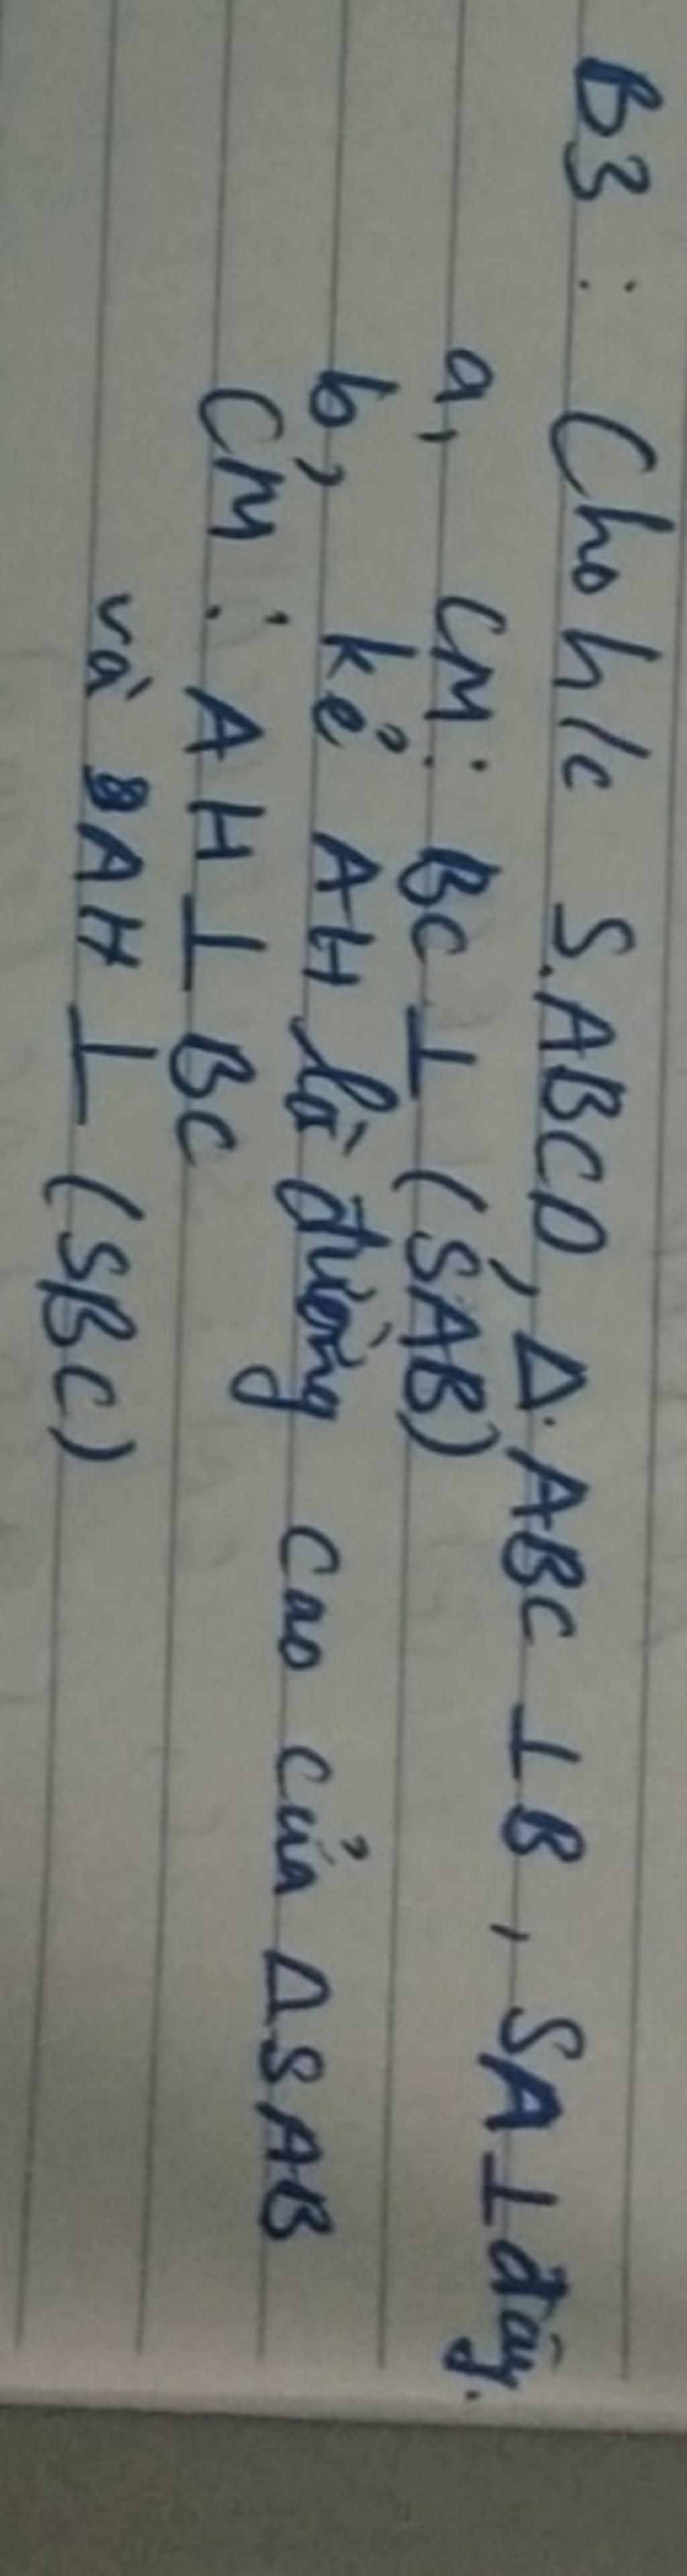 B3 : Cho h/c S.ABCD, Δ.ABC ⊥ B, SA ⊥ đáy.
a, CM: BC ⊥ (SAB)
b, kẻ AH là đường cao của ΔSAB
CM: AH ⊥ BC
và AH ⊥ (SBC)